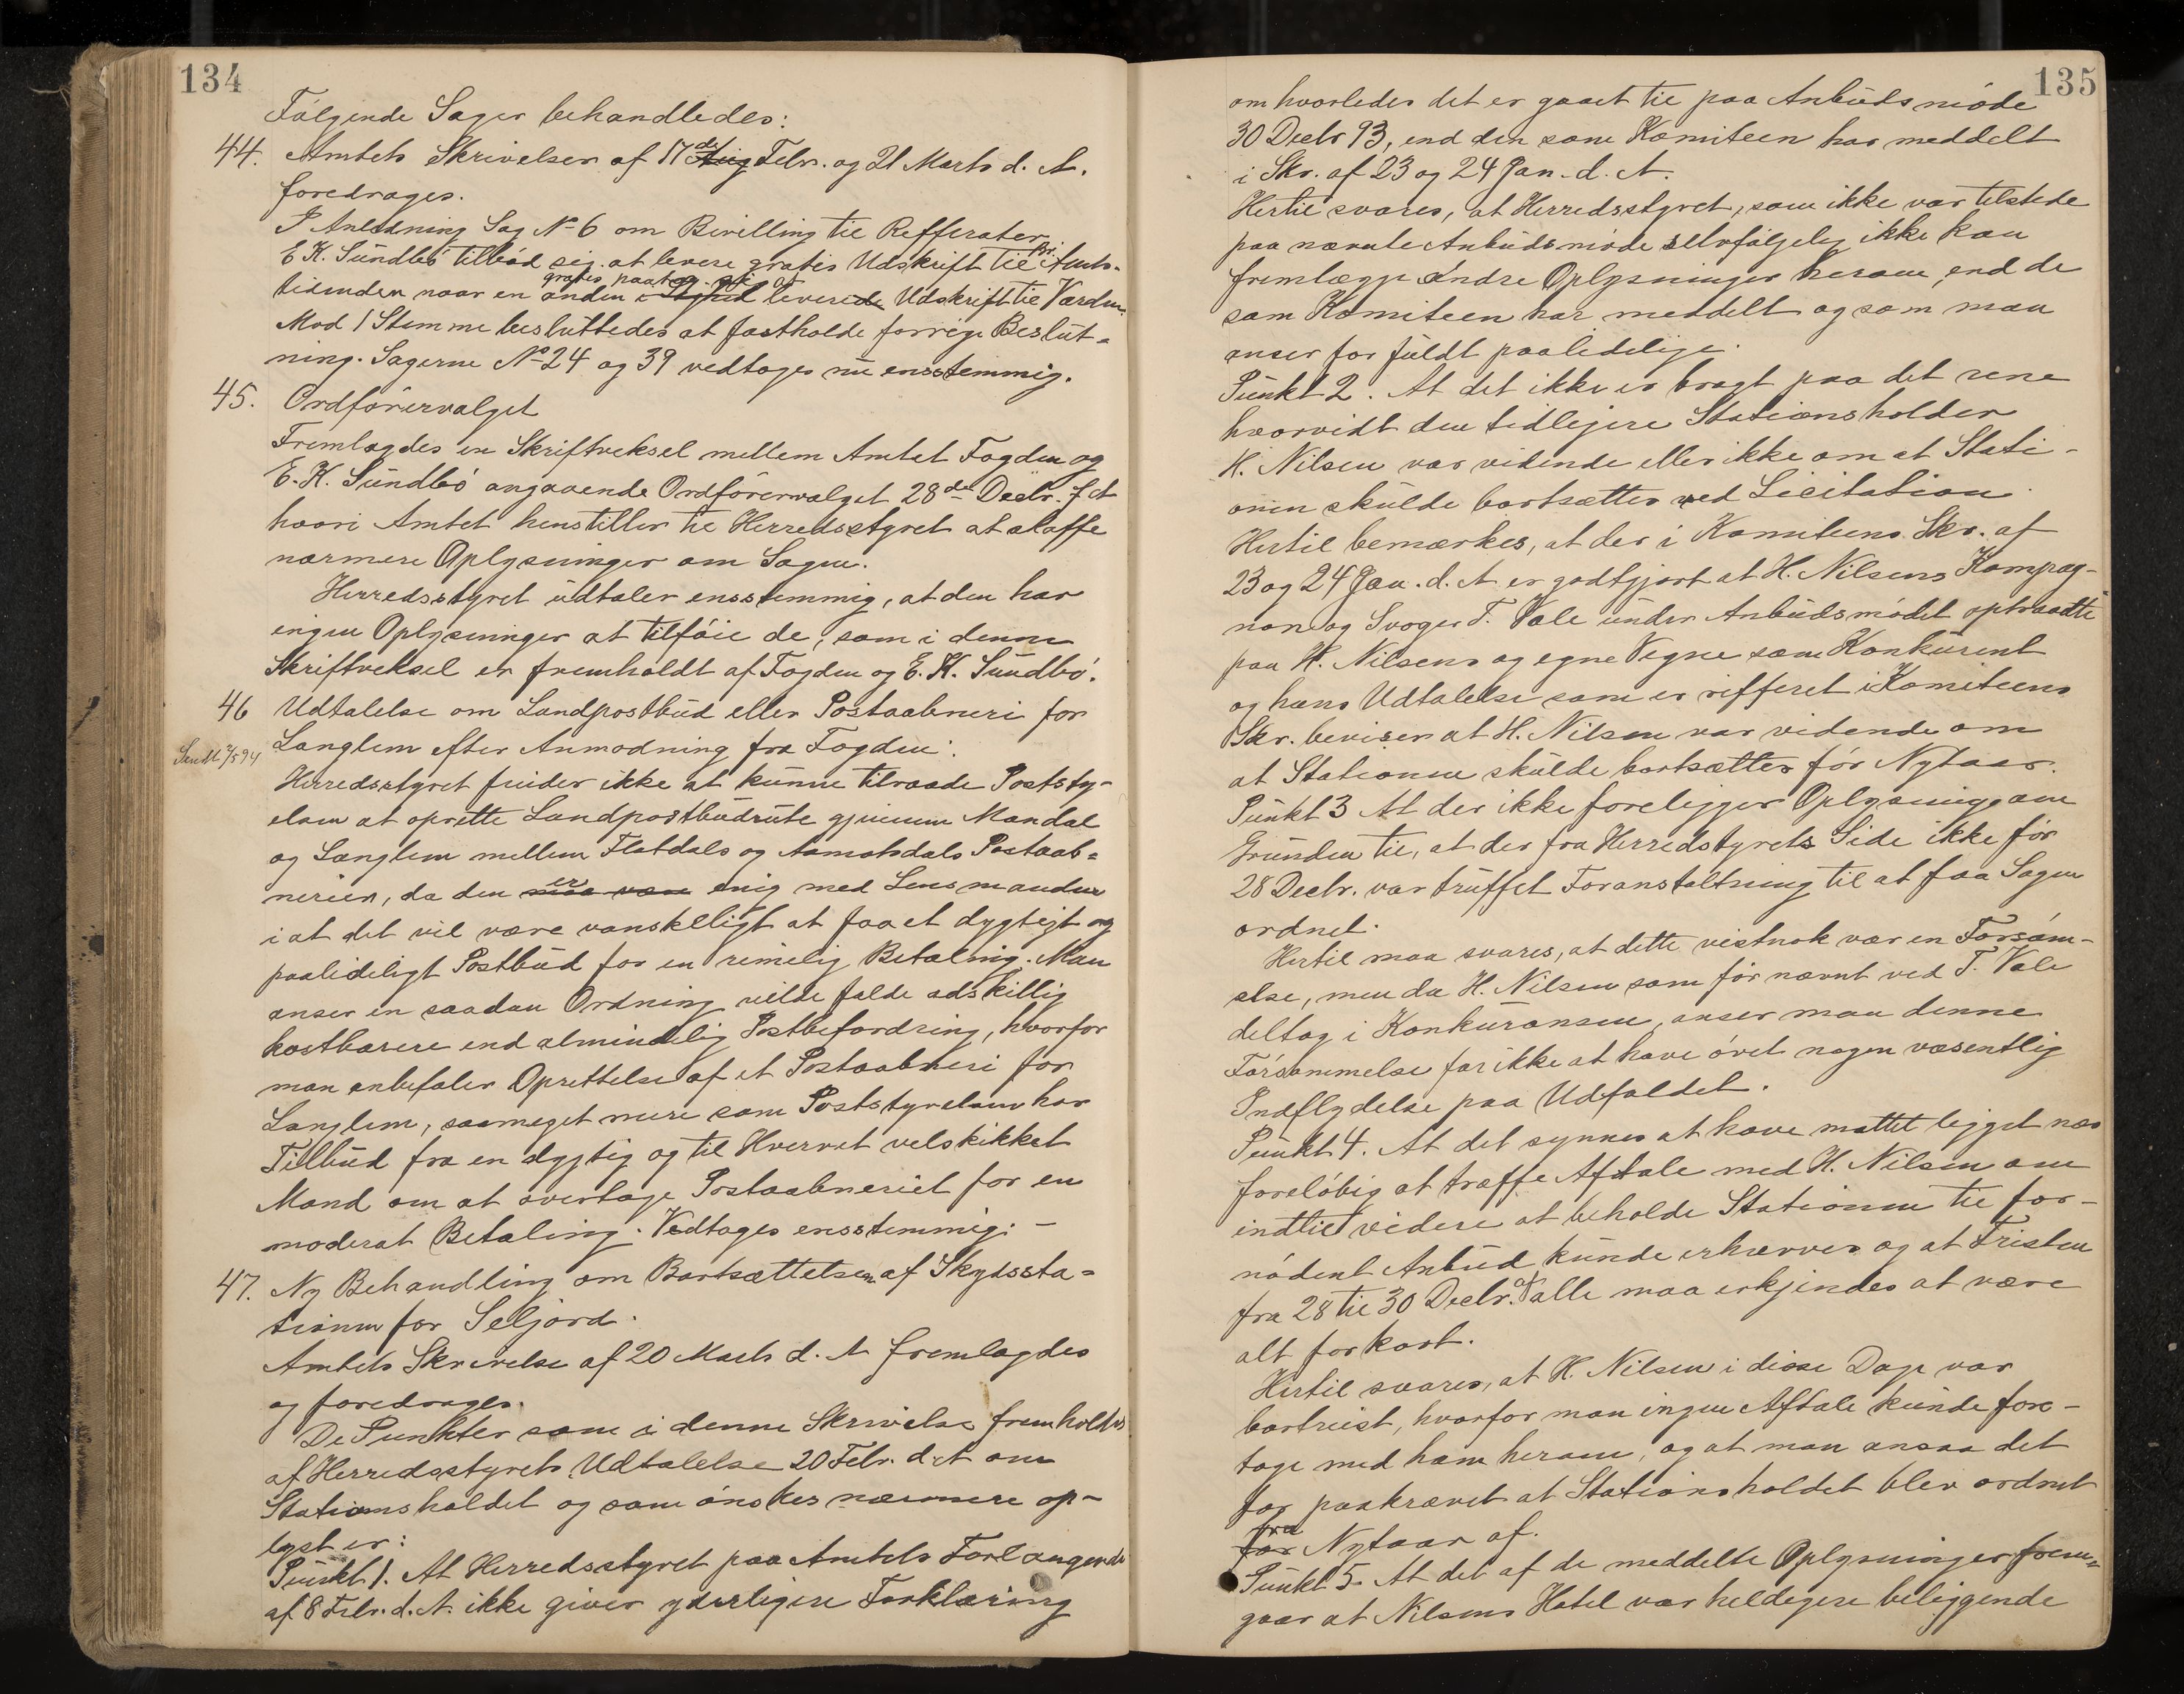 134
Følgende Sager behandledes:
44. Amtets Skrivelser af 17de Aug Febr. og 21 Marts d. A.
foredrages.
I Anledning Sag No 6 om Bevilling til Refferater
E. K. Sundbø tilbød sig at levere gratis Udskrift til Amts-
gratis paatog sig at
tidenden naar en anden i Løghed leverede Udskrift til Varden.
Mod 1 Stemme besluttedes at fastholde forrige Beslut-
ning. Sagerne No 24 og 39 vedtoges nu ensstemmig.
45. Ordførervalget
Fremlagdes en Skriftveksel mellem Amtet Fogden og
E. K. Sundbø angaaende Ordførervalget 28de Decbr. f A
hvori Amtet henstiller til Herredsstyret at skaffe
nærmere Oplysninger om Sagen.
Herredsstyret udtaler ensstemmig, at den har
ingen Oplysninger at tilføie de, som i denne
Skriftveksel er fremholdt af Fogden og E. K. Sundbø.
46 Udtalelse om Landpostbud eller Postaabneri for
Sendt 2/5 94
Langlem efter Anmodning fra Fogden:
Herredsstyret finder ikke at kunne tilraade Poststy-
elsen at oprette Landpostbudrute gjennem Mandal
og Langlem mellem Flatdals og Aamotsdals Postaab-
nerier, da den maa være er enig med Lensmanden
i at det vil være vanskelligt at faa et dygtigt og
paalideligt Postbud for en rimelig Betaling. Man
anser en saadan Ordning vilde falde adskillig
kostbarere end almindelig Postbefordring, hvorfor
man anbefaler Oprettelse af et Postaabneri for
Langlem, saameget mere som Poststyrelsen har
Tilbud fra en dygtig og til Hvervet velskikket
Mand om at overtage Postaabneriet for en
moderat Betaling. Vedtoges ensstemmig. -
47. Ny Behandling om Bortsættelsen af Skydssta-
tionen for Seljord.
Amtets Skrivelse af 20 Marts d. A fremlagdes
og foredrages.
De Punkter som i denne Skrivelse fremholdes
af Herredsstyrets Udtalelse 20 Febr. d. A om
Stationsholdet og som ønskes nærmere op-
lyst er:
Punkt 1. At Herredsstyret paa Amtets Forlangende
af 8 Febr. d. A. ikke giver yderligere Forklaring
135
om hvorledes det er gaaet til paa Anbudsmøde
30 Decbr 93, end den som Komiteen har meddelt
i Skr. af 23 og 24 Jan. d. A.
Hertil svares, at Herredsstyret, som ikke var tilstede
paa nævnte Anbudsmøde selvfølgelig ikke kan
fremlægge andre Oplysninger herom, end de
som Komiteen har meddelt og som man
anser for fuldt paalidelige.
Punkt 2. At det ikke er bragt paa det rene
hvorvidt den tidligere Stationsholder
H. Nilsen var vidende eller ikke om at Stati-
onen skulde bortsættes ved Licitation.
Hertil bemærkes, at der i Komiteens Skr. af
23 og 24 Jan. d. A er godtgjort at H. Nilsens Kompag-
non og Svoger T. Vale under Anbudsmødet optraadte
paa H. Nilsens og egne Vegne som Konkurent
og hans Udtalelse som er refferet i Komiteens
Skr. beviser at H. Nilsen var vidende om
at Stationen skulde bortsættes før Nytaar.
Punkt 3 At der ikke foreligger Oplysning om
Grunden til, at der fra Herredstyrets Side ikke før
28 Decbr. var truffet Foranstaltning til at faa Sagen
ordnet.
Hertil maa svares, at dette vistnok var en Forsøm-
else, men da H. Nilsen som før nævnt ved T. Vale
deltog i Konkuransen, anser man denne
Forsømmelse for ikke at have øvet nogen væsentlig
Indflydelse paa Udfaldet.
Punkt 4. At det synnes at have mattet ligget nær
foreløbig at træffe Aftale med H. Nilsen om
indtil videre at beholde Stationen til for-
nødent Anbud kunde erhverves og at Fristen
fra 28 til 30 Decbr. af alle maa erkjendes at være
alt for kort.
Hertil svares, at H. Nilsen i disse Dage var
bortreist, hvorfor man ingen Aftale kunde fore-
tage med ham herom, og at man ansaa det
for paakrævet at Stationsholdet blev ordnet
for fra Nytaar af.
Punkt 5. At det af de meddelte Oplysninger frem-
gaar at Nilsens Hotel var heldigere beliggende